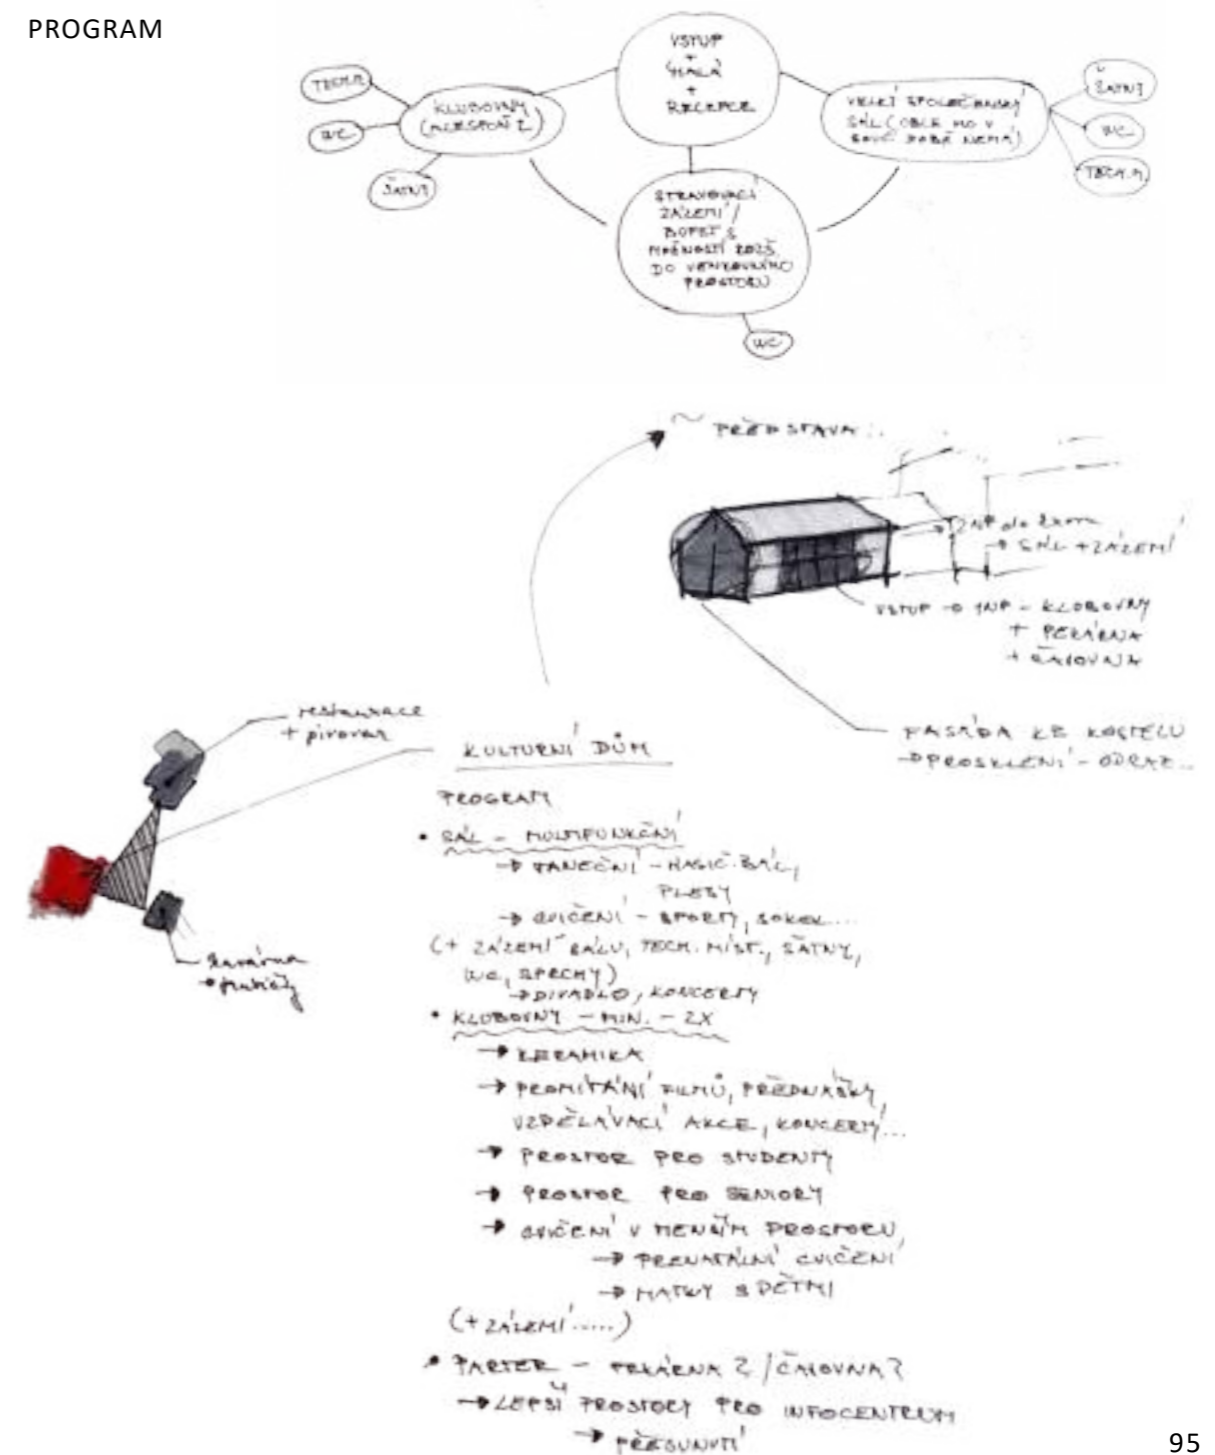 PROGRAM
VSTUP
+
HALA
+
RECEPCE
TECH.M
WC
ŠATNY
KLUBOVNY
(ALESPOŇ 2)
VELKÝ SPOLEČENSKÝ
SÁL (OBEC HO V
SOUČ. DOBĚ NEMÁ)
ŠATNY
WC
TECH.M
STRAVOVACÍ
ZÁZEMÍ /
BUFET S
MOŽNOSTÍ ROZŠ.
DO VENKOVNÍHO
PROSTORU
WC
~ PŘEDSTAVA:.
→ 2NP do
→ SÁL + ZÁZEMÍ
VSTUP → 1NP - KLUBOVNY
+ PEKÁRNA
+ ČAJOVNA
FASÁDA KE KOSTELU
→ PROSKLENÍ - ODRAZ...
restaurace
+ pivovar
kavárna
KULTURNÍ DŮM
PROGRAM
• SÁL - MULTIFUNKČNÍ
→ TANEČNÍ - HASIČ. BÁL,
PLESY
→ CVIČENÍ - SPORTY, SOKOL...
(+ ZÁZEMÍ SÁLU, TECH. MÍST., ŠATNY,
WC, SPRCHY)
→ DIVADLO, KONCERTY
• KLUBOVNY - MIN. - 2X
→ KERAMIKA
→ PROMÍTÁNÍ FILMŮ, PŘEDNÁŠKY,
VZDĚLÁVACÍ AKCE, KONCERTY...
→ PROSTOR PRO STUDENTY
→ PROSTOR PRO SENIORY
→ CVIČENÍ V MENŠÍM PROSTORU,
→ PRENATÁLNÍ CVIČENÍ
→ MATKY S DĚTMI
(+ ZÁZEMÍ.....)
• PARTER - PEKÁRNA ? / ČAJOVNA ?
→ LEPŠÍ PROSTORY PRO INFOCENTRUM
→ PŘESUNUTÍ
95